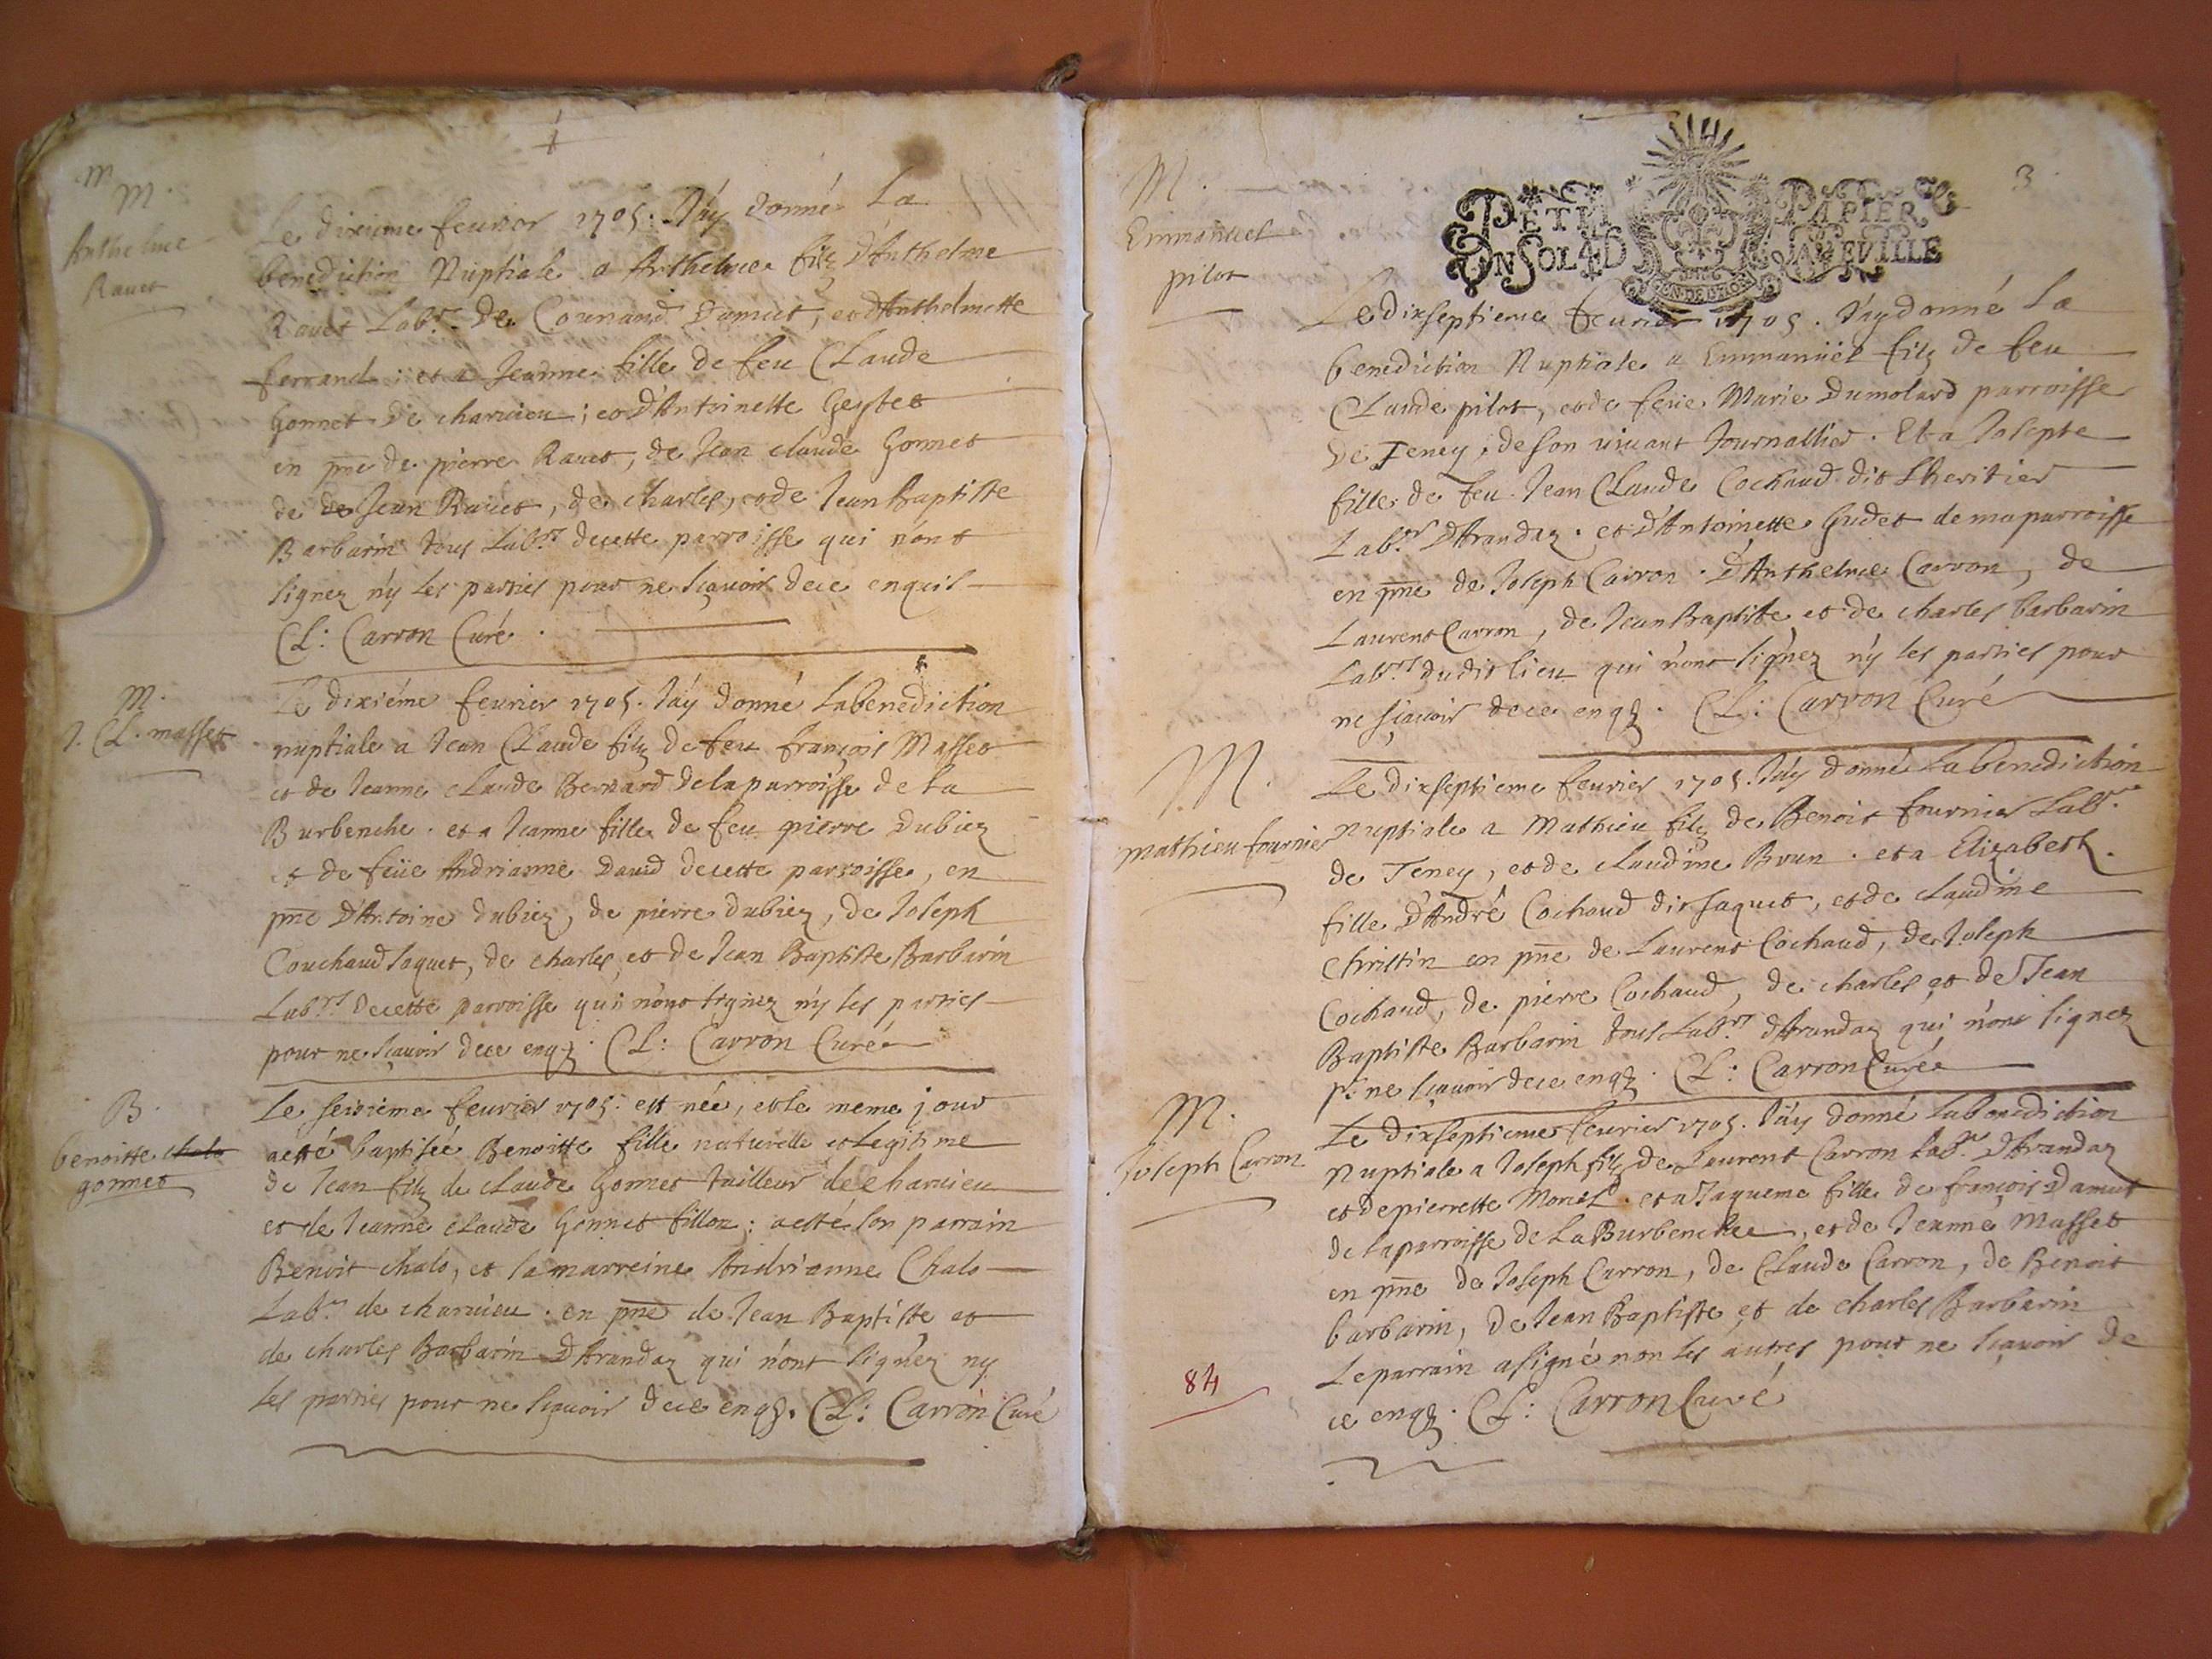 M
M.
Anthelme
Ravet
Le dixieme feurier 1705. J'ay donné La
benediction Nuptiale a Anthelme filz d'Anthelme
Ravet Lab.r de Counand Damut, et d'Anthelmette
ferrand; et a Jeanne fille de feu CLaude
Gonnet de charuieu; et d'Antoinette
en pñe de pierre Ravet, de Jean claude Gonnet
de de Jean Ravet, de charles, et de Jean Baptiste
Barbarin tous Lab.rs decette parroisse qui n'ont
signez n'y les parties pour ne sçauoir dece enquis
CL: Carron Curé.
M.
J. CL. masset
Le dixiéme feurier 1705. J'aÿ donné Labenediction
nuptiale a Jean CLaude filz de feu françois Masset
et de Jeanne cLaude Bernard delaparroisse de La
Burbenche. et a Jeanne fille de feu pierre Dubiez
et de feüe Andrianne David decette parroisse, en
pñe D'Antoine dubiez, de pierre dubiez, de Joseph
Couchaud Jaquet, de charles, et de Jean Baptiste Barbarin
Lab.rs decette parroisse qui n'ont signez n'y les parties
pour ne sçauoir dece enqz. CL: Carron Curé
B.
benoitte chalo
gonnet
Le seizieme feurier 1705. est née, et le meme jour
aesté baptisée Benoitte fille naturelle et Legitime
de Jean filz de cLaude Gonnet tailleur de charuieu
et de Jeanne cLaude Gonnet fillon: aesté son parrain
Benoit chalo, et samarreine Andrianne Chalo
Lab.rs de charuieu. en pñe de Jean Baptiste et
de charles Barbarin D'Arandaz qui n'ont signez ny
les parties pour ne sçauoir dece enqz. CL: Carron Curé
3
PETIT PAPIER
UN SOL 4 D LA FEVILLE
M.
Emmanuel
pilot
Le dixseptieme feurier 1705. J'ay donné La
benediction Nuptiale a Emmanüel filz de feu
CLaude pilot, et de feüe Marie Dumolard parroisse
de Teney, deson uiuant Journallier. Et a Josepte
fille de feu Jean CLaude Cochaud dit L'heritier
Lab.r D'Arandaz. et D'Antoinette Gudet de maparroisse
en pñe de Joseph Carron. D'Anthelme Carron, de
Laurent Carron, de Jean Baptiste et de charles barbarin
Lab.rs dudit lieu qui n'ont signez n'y les parties pour
ne sçauoir dece enqz. CL: Carron Curé
M.
mathieu fournier
Le dixseptieme feurier 1705. J'aÿ donné Labenediction
Nuptiale a Mathieu filz de Benoit fournier Lab.r
de Teney, et de claudine Brun. et a Elizabeth
fille D'André Cochaud dit Jaquet, et de claudine
christin en pñe de Laurent Cochaud, de Joseph
Cochaud, de pierre Cochaud, de charles et de Jean
Baptiste Barbarin tous Lab.rs d'Arandaz qui n'ont signez
p.r ne sçauoir dece enqz. CL: Carron Curé
M.
Joseph Carron
Le dixseptieme feurier 1705. J'aÿ donné Labenediction
Nuptiale a Joseph filz de Laurent Carron Lab.r D'Arandaz
et depierrette Morel. et a Jaqueme fille de françois Damut
de laparroisse de La Burbenche, et de Jeanne Masset
en pñe de Joseph Carron, de CLaude Carron, de Benoit
barbarin, de Jean Baptiste et de charles Barbarin
Leparrain asigné non les autres pour ne sçauoir de
ce enqz. CL: Carron Curé
84